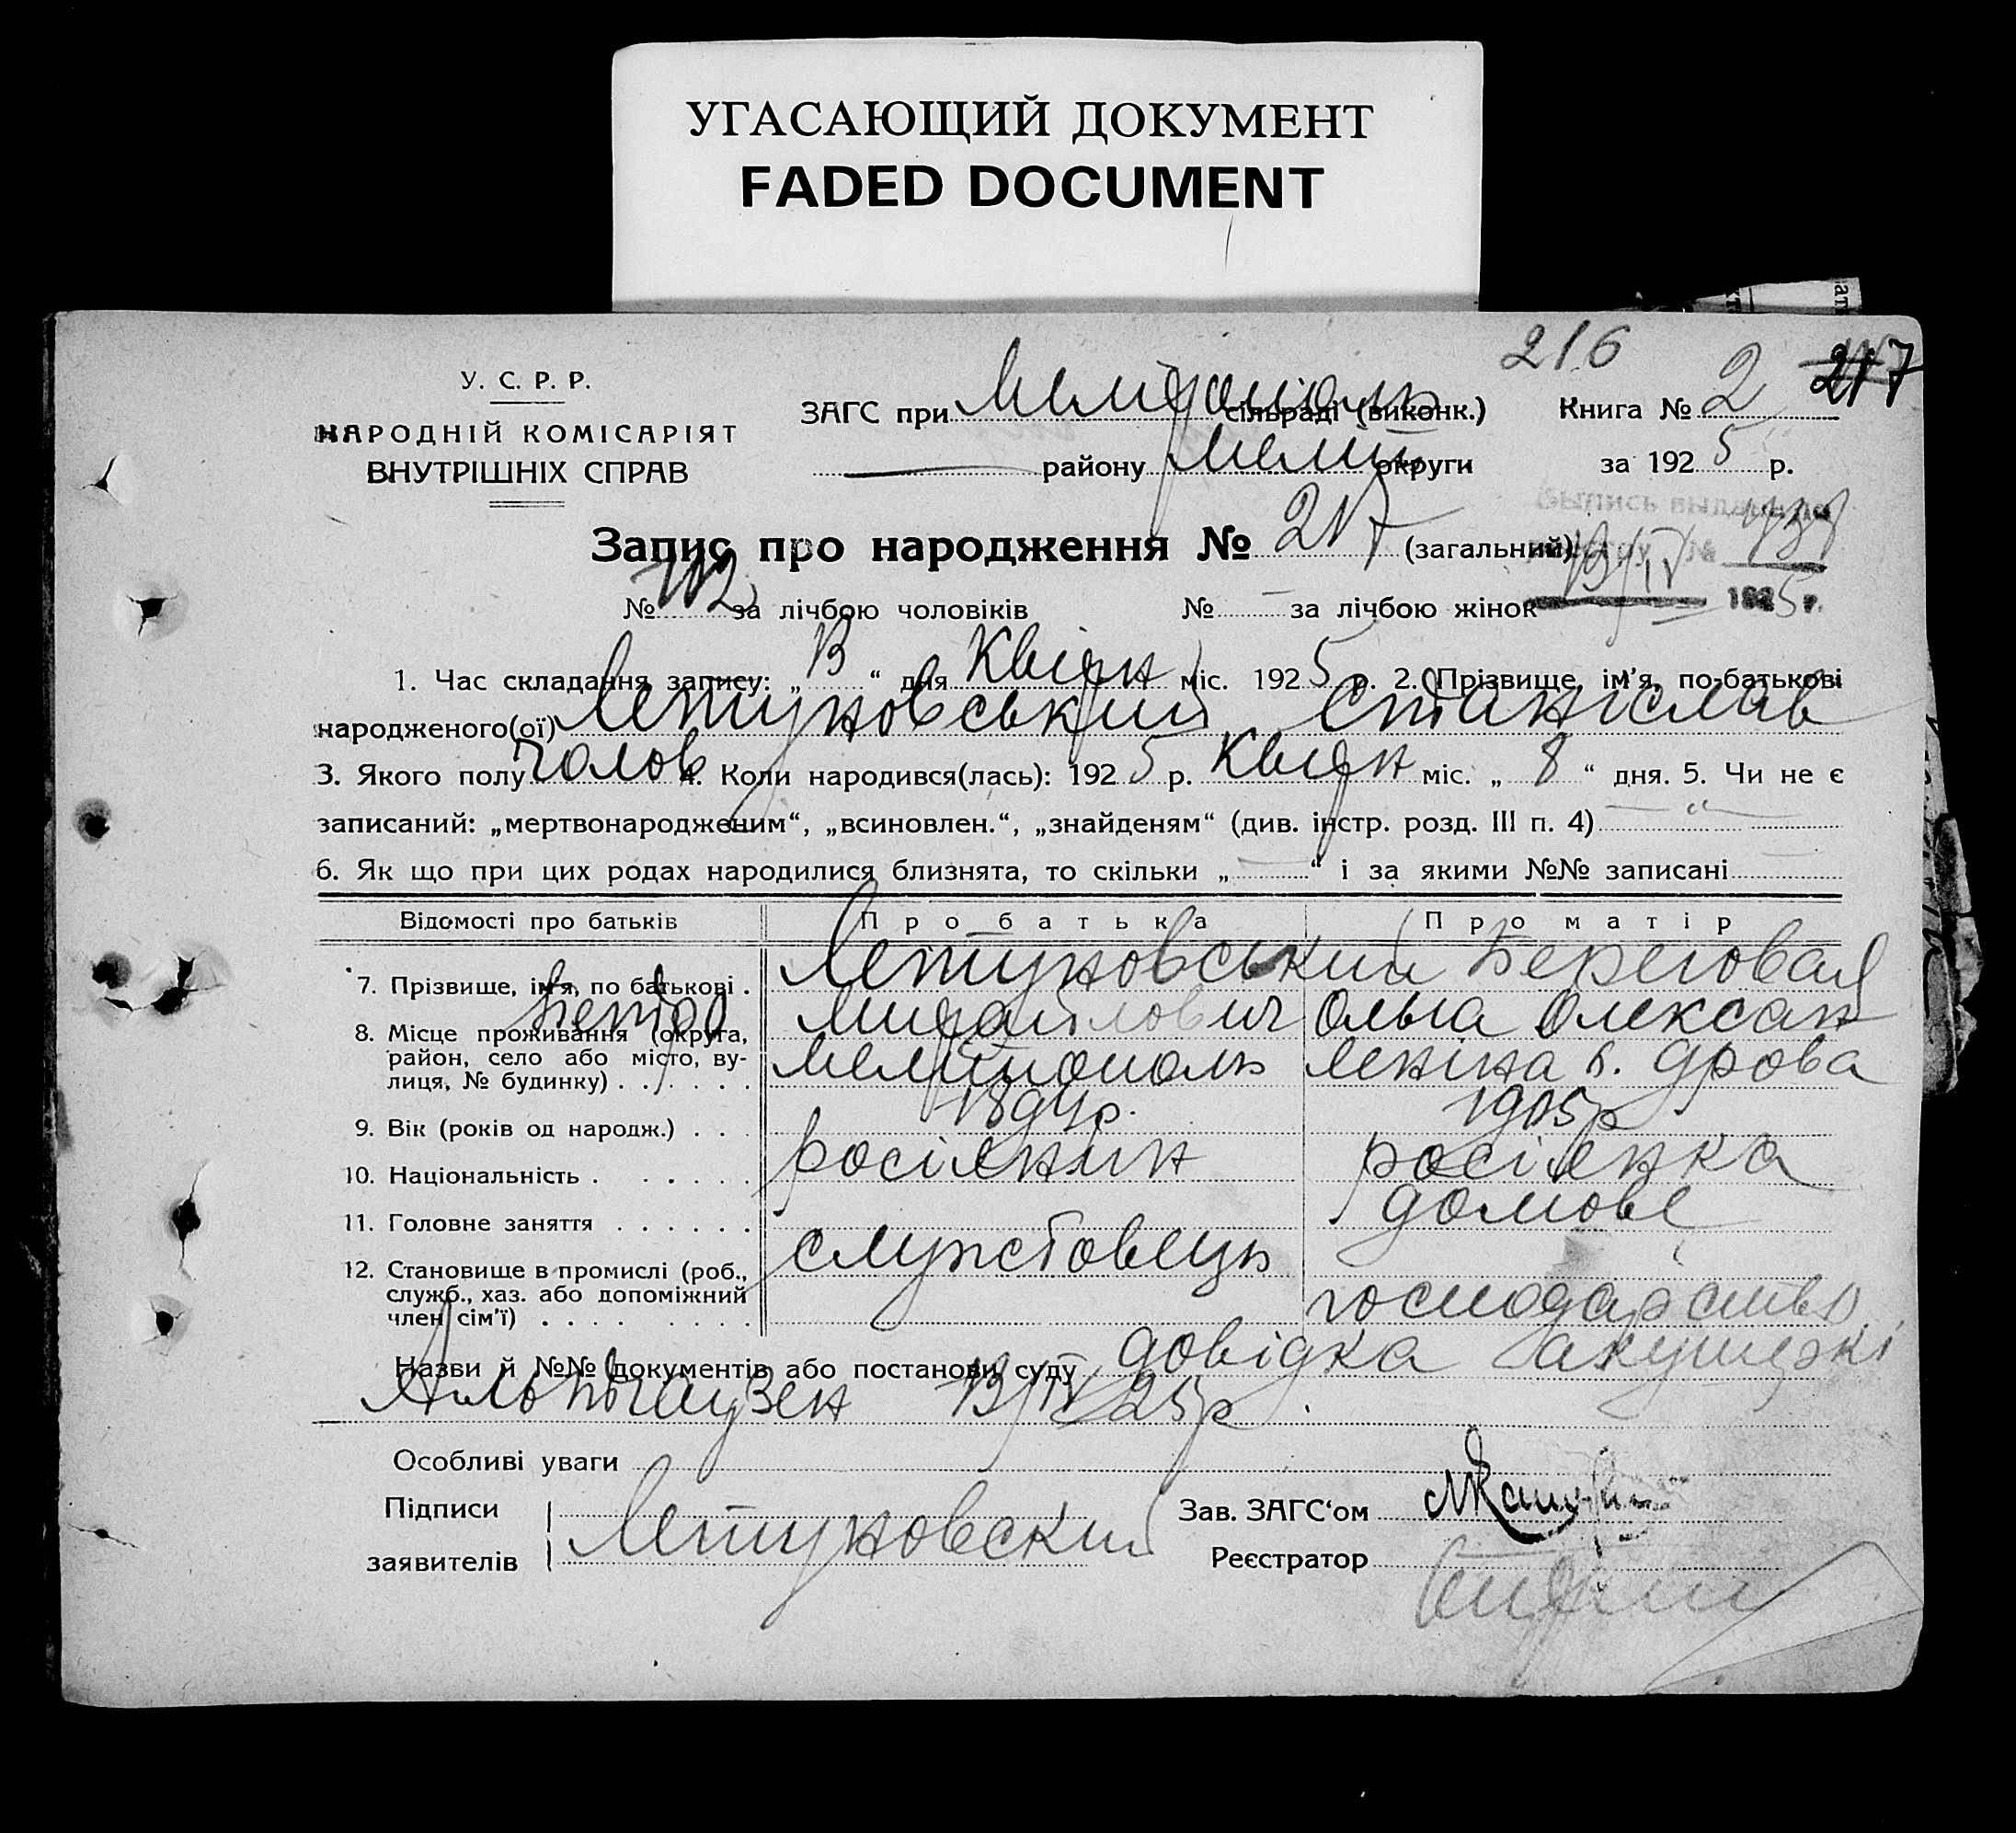 УГАСАЮЩИЙ ДОКУМЕНТ
FADED DOCUMENT
216
217
У. С. Р. Р.
НАРОДНІЙ КОМІСАРІЯТ
ВНУТРІШНІХ СПРАВ
ЗАГС при Мелітополь сільраді (виконк.)
району Меліт округи
Книга № 2
за 1925 р.
Запис про народження № 217 (загальний)
№ 112 за лічбою чоловіків № — за лічбою жінок
Выпись выдана по
№
13/IV 1925 г.
1. Час складання запису: „13“ дня Квітн міс. 1925 р. 2. Прізвище, ім'я, по-батькові
народженого(ої) Летуновський Станіслав
3. Якого полу чолов 4. Коли народився(лась): 1925 р. Квітн міс. „8“ дня. 5. Чи не є
записаний: „мертвонародженим“, „всиновлен.“, „знайденям“ (див. інстр. розд. III п. 4) — “ —
6. Як що при цих родах народилися близнята, то скільки „—“ і за якими №№ записані
Відомості про батьків Про батька Про матір
7. Прізвище, ім'я, по батькові . Летуновський Береговая
Петро Михайлович Ольга Олексан
8. Місце проживання (округа, район, село або місто, вулиця, № будинку) . . . . . . Мелітополь Леніна 8. дрова
9. Вік (років од народж.) . . . 1894р. 1905р
10. Національність . . . . . . росіянин росіянка
11. Головне заняття . . . . . . домове
12. Становище в промислі (роб., служб., хаз. або допоміжний член сім'ї) . . . . . . . . службовець господарство
Назви й №№ документів або постанови суду довідка акушерки
13/IV 25р
Особливі уваги
Підписи
заявителів
Летуновский
Зав. ЗАГС'ом
Реєстратор